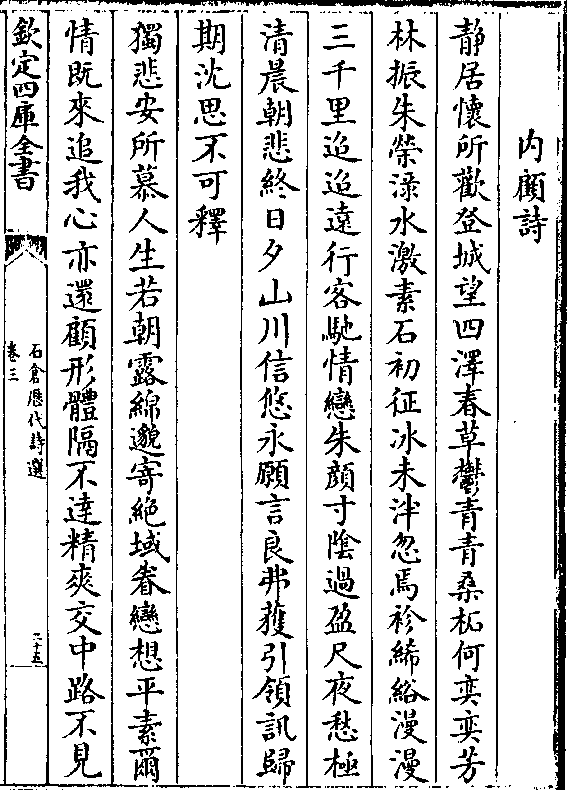 内顧詩
静居懷所歡登城望四澤春草鬱青青桑柘何奕奕芳
林振朱榮渌水激素石初征冰未泮忽焉袗絺綌漫漫
三千里迢迢遠行客馳情戀朱顔寸陰過盈尺夜愁極
清晨朝悲終日夕山川信悠永願言良弗獲引領訊歸
期沈思不可釋
獨悲安所慕人生若朝露綿邈寄絶域眷戀想平素爾
情既來追我心亦還顧形體隔不逹精爽交中路不見
欽定四庫全書
石倉歷代詩選
卷三
二十五